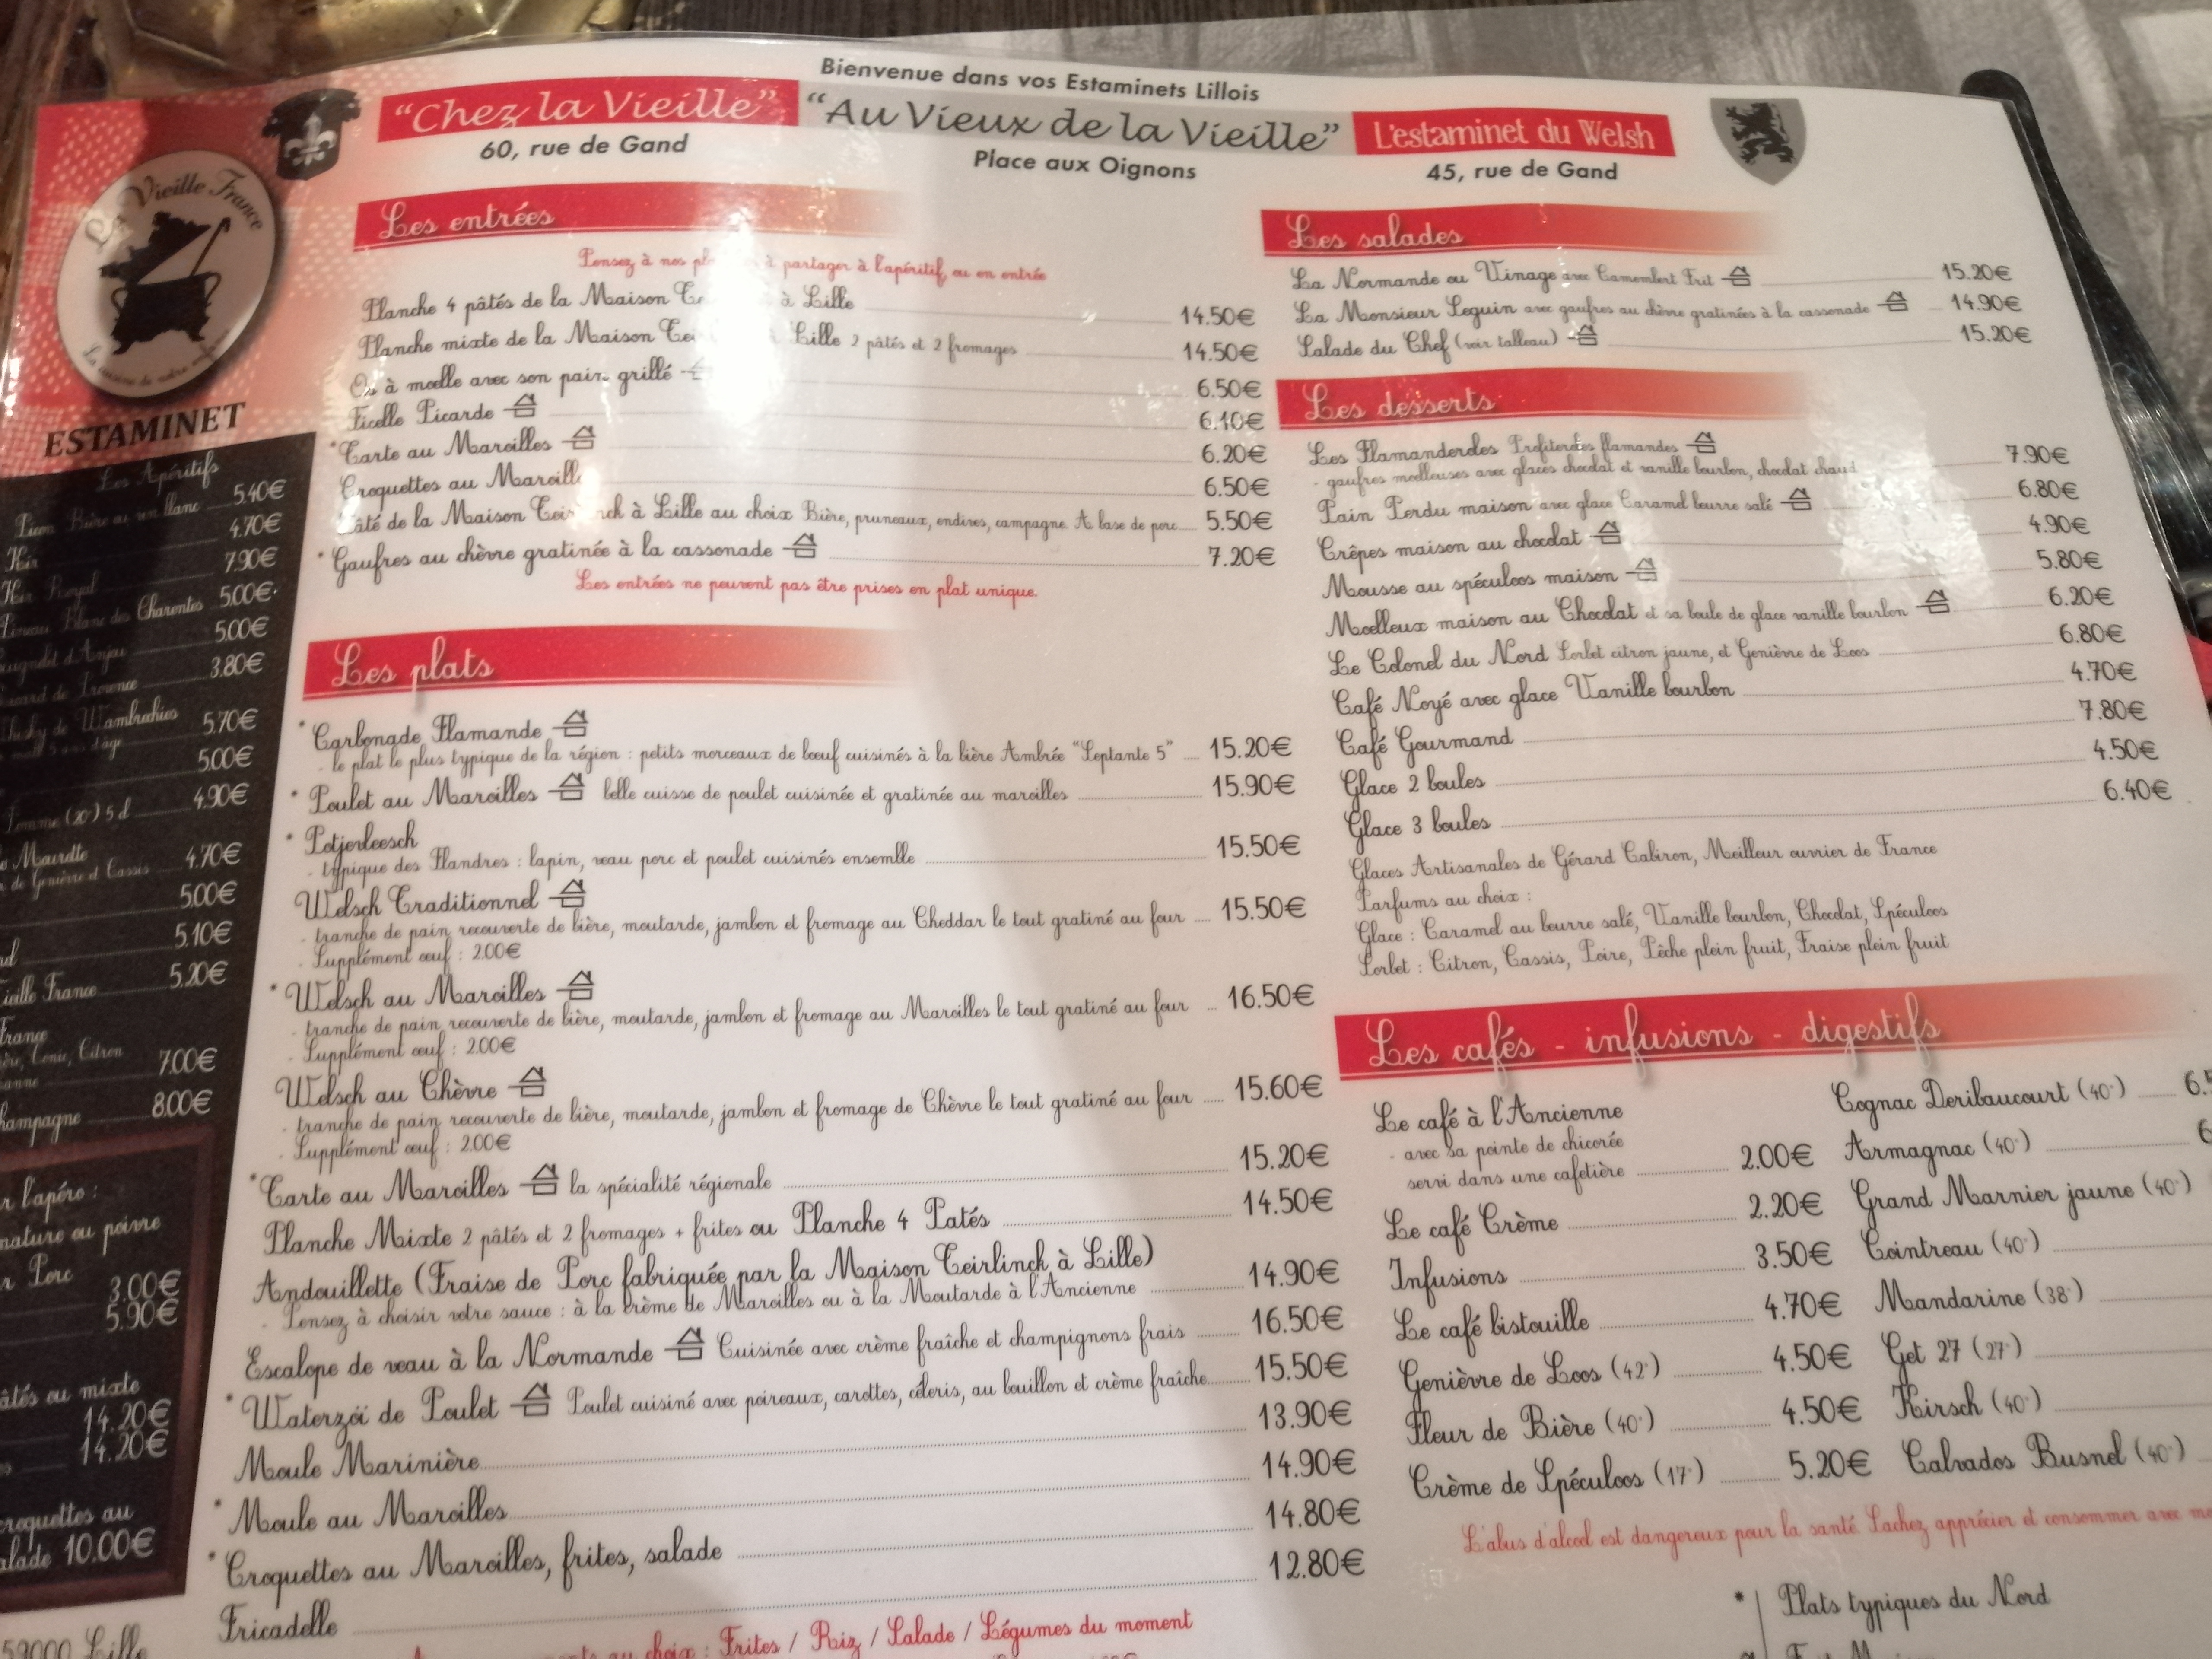 Bienvenue dans vos Estaminets Lillois
"Chez la Vieille" "Au Vieux de la Vieille" L'estaminet du Welsh
60, rue de Gand Place aux Oignons 45, rue de Gand
La Vieille France
La cuisine de notre
ESTAMINET
Les Apéritifs
Picon Bière ou vin blanc 5.40€
Kir 4.70€
Kir Royal 7.90€
Pineau Blanc des Charentes 5.00€
d'Anjou 5.00€
de Provence 3.80€
de Wambrechies 5.70€
d'âge
5.00€
Pomme (20°) 5 cl 4.90€
de Genièvre et Cassis 4.70€
5.00€
5.10€
Vieille France 5.20€
France
Citron
7.00€
8.00€
l'apéro :
nature ou poivre
Porc
3.00€
5.90€
ou mixte
14.20€
14.20€
croquettes au
10.00€
59000 Lille
Les entrées
Pensez à nos à partager à l'apéritif, ou en entrée
Planche 4 pâtés de la Maison à Lille 14.50€
Planche mixte de la Maison Lille 2 pâtés et 2 fromages 14.50€
Os à moelle avec son pain grillé 6.50€
Ficelle Picarde 6.10€
*Tarte au Maroilles 6.20€
Croquettes au 6.50€
Pâté de la Maison à Lille au choix Bière, pruneaux, endives, campagne. A base de porc 5.50€
* Gaufres au chèvre gratinée à la cassonade 7.20€
Les entrées ne peuvent pas être prises en plat unique.
Les plats
* Carbonade Flamande
- le plat le plus typique de la région : petits morceaux de boeuf cuisinés à la bière Ambrée "Septante 5" 15.20€
* Poulet au Maroilles belle cuisse de poulet cuisinée et gratinée au maroilles 15.90€
* Potjevleesch
- typique des Flandres : lapin, veau porc et poulet cuisinés ensemble 15.50€
Welsch Traditionnel
- tranche de pain recouverte de bière, moutarde, jambon et fromage au Cheddar le tout gratiné au four 15.50€
- Supplément œuf : 2.00€
* Welsch au Maroilles
- tranche de pain recouverte de bière, moutarde, jambon et fromage au Maroilles le tout gratiné au four 16.50€
- Supplément œuf : 2.00€
Welsch au Chèvre
- tranche de pain recouverte de bière, moutarde, jambon et fromage de Chèvre le tout gratiné au four 15.60€
- Supplément œuf : 2.00€
*Tarte au Maroilles la spécialité régionale 15.20€
Planche Mixte 2 pâtés et 2 fromages + frites ou Planche 4 Patés 14.50€
Andouillette (Fraise de Porc fabriquée par la Maison Teirlinck à Lille)
- Pensez à choisir votre sauce : à la crème de Maroilles ou à la Moutarde à l'Ancienne 14.90€
Escalope de veau à la Normande Cuisinée avec crème fraîche et champignons frais 16.50€
* Waterzoï de Poulet Poulet cuisiné avec poireaux, carottes, céleris, au bouillon et crème fraîche 15.50€
Moule Marinière 13.90€
* Moule au Maroilles 14.90€
* Croquettes au Maroilles, frites, salade 14.80€
Fricadelle 12.80€
au choix : Frites / Riz / Salade / Légumes du moment
Les salades
La Normande ou Vinage avec Camembert Frit 15.20€
La Monsieur Seguin avec gaufres au chèvre gratinées à la cassonade 14.90€
Salade du Chef (voir tableau) 15.20€
Les desserts
Les Flamanderoles Profiteroles flamandes 7.90€
- gaufres moelleuses avec glaces chocolat et vanille bourbon, chocolat chaud
Pain Perdu maison avec glace Caramel beurre salé 6.80€
Crêpes maison au chocolat 4.90€
Mousse au spéculoos maison 5.80€
Moelleux maison au Chocolat et sa boule de glace vanille bourbon 6.20€
Le Colonel du Nord Sorbet citron jaune, et Genièvre de Loos 6.80€
Café Noyé avec glace Vanille bourbon 4.70€
Café Gourmand 7.80€
Glace 2 boules 4.50€
Glace 3 boules 6.40€
Glaces Artisanales de Gérard Cabiron, Meilleur ouvrier de France
Parfums au choix :
Glace : Caramel au beurre salé, Vanille bourbon, Chocolat, Spéculoos
Sorbet : Citron, Cassis, Poire, Pêche plein fruit, Fraise plein fruit
Les cafés - infusions - digestifs
Le café à l'Ancienne
- avec sa pointe de chicorée
servi dans une cafetière 2.00€
Le café Crème 2.20€
Infusions 3.50€
Le café bistouille 4.70€
Genièvre de Loos (42°) 4.50€
Fleur de Bière (40°) 4.50€
Crème de Spéculoos (17°) 5.20€
Cognac Deribaucourt (40°)
Armagnac (40°)
Grand Marnier jaune (40°)
Cointreau (40°)
Mandarine (38°)
Get 27 (27°)
Kirsch (40°)
Calvados Busnel (40°)
L'abus d'alcool est dangereux pour la santé. Sachez apprécier et consommer avec
* Plats typiques du Nord